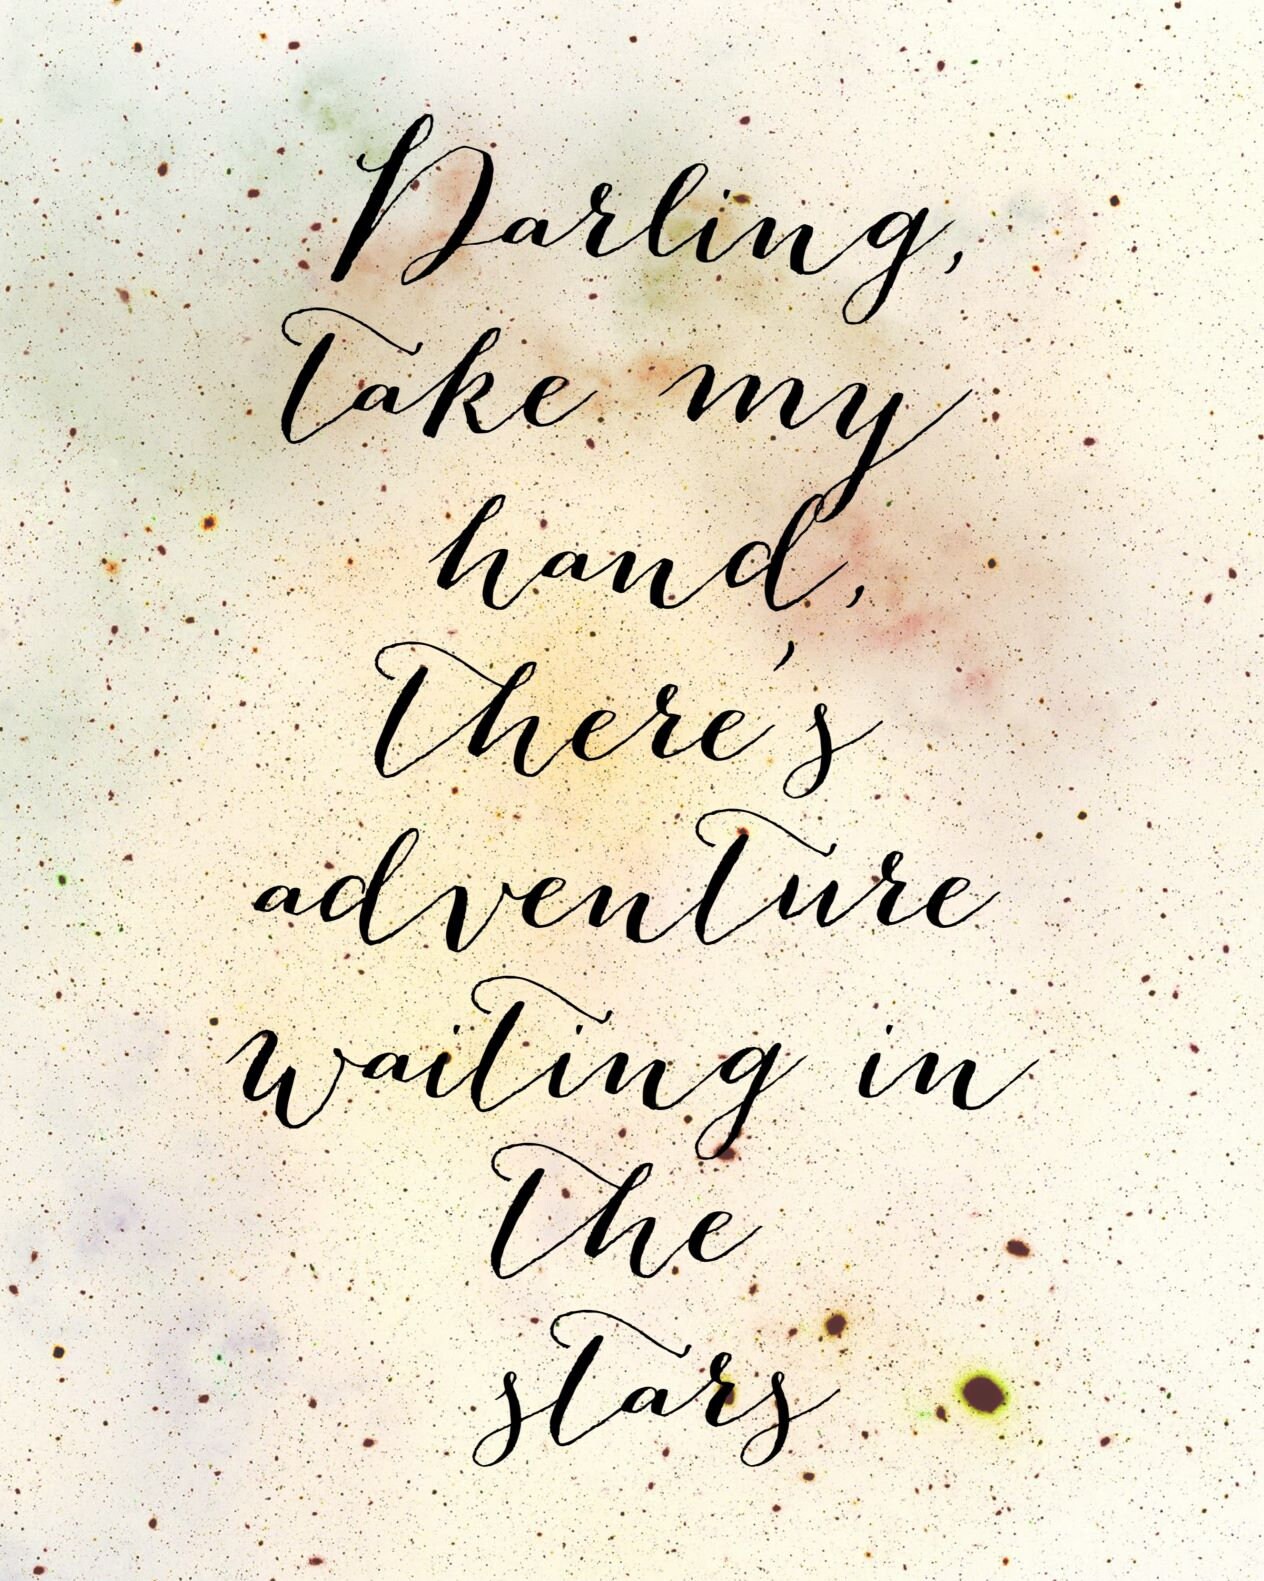 Darling,
take my
hand,
there's
adventure
waiting in
the
stars